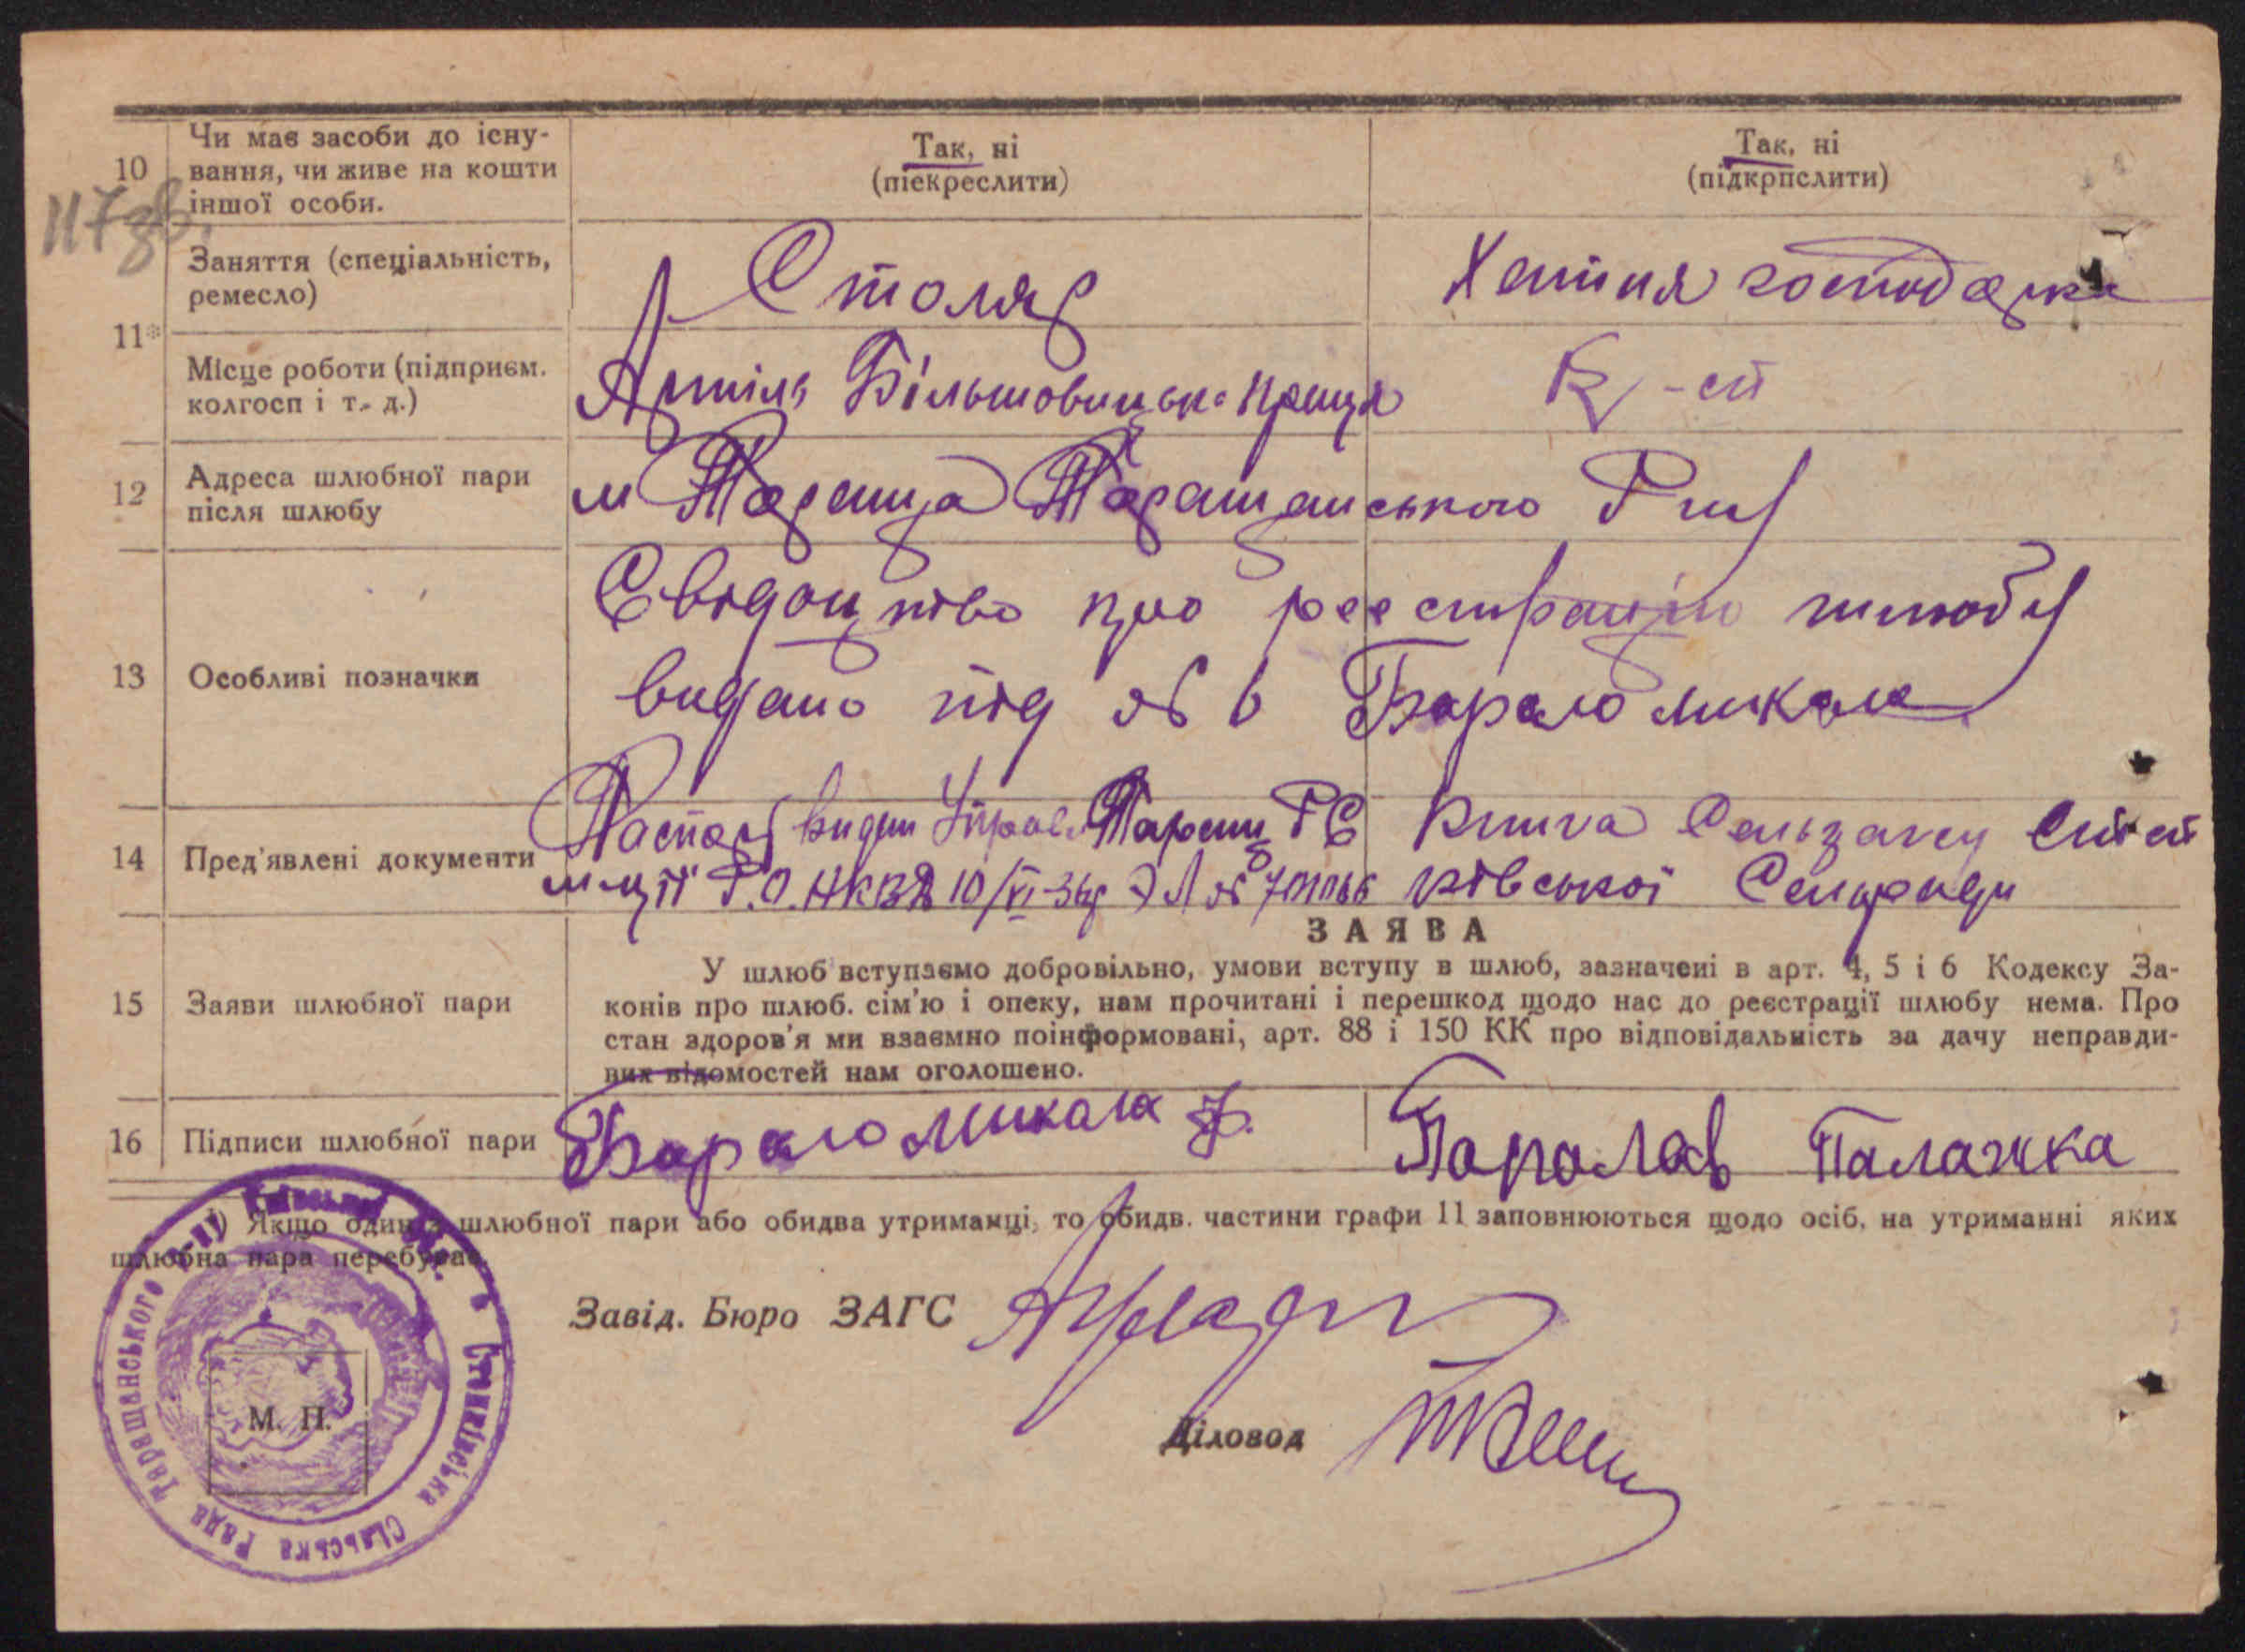 10 Чи має засоби до існу-
вання, чи живе на кошти
іншої особи.
Так, ні
(пієкреслити)
Так, ні
(підкрпслити)
117зв.
11*
Заняття (спеціальність,
ремесло)
Столяр
Хатня господарка
Місце роботи (підприєм.
колгосп і т. д.)
Артіль Більшовицьк праця
К-сп
12 Адреса шлюбної пари
після шлюбу
м Тараща Таращанського Р-ну
13 Особливі позначки
Свідоцтво про реєстрацію шлюбу
видано під № 6 Барало Микола
14 Пред'явлені документи
Паспорт видан Управ. Таращ РС
міліції Р.О. НКВД 10/VI-36р
Книга Сельраху
ківської Сельради
15 Заяви шлюбної пари
ЗАЯВА
У шлюб вступаємо добровільно, умови вступу в шлюб, зазначені в арт. 4, 5 і 6 Кодексу За-
конів про шлюб. сім'ю і опеку, нам прочитані і перешкод щодо нас до реєстрації шлюбу нема. Про
стан здоров'я ми взаємно поінформовані, арт. 88 і 150 КК про відповідальність за дачу неправди-
вих відомостей нам оголошено.
16 Підписи шлюбної пари
Барало Микола Ф.
Палажка
) Якщо один з шлюбної пари або обидва утриманці, то обидв. частини графи 11 заповнюються щодо осіб, на утриманні яких
шлюбна пара перебуває.
Завід. Бюро ЗАГС
Діловод
М. П.
Станківська сільська Рада Таращанського р-ну Київської